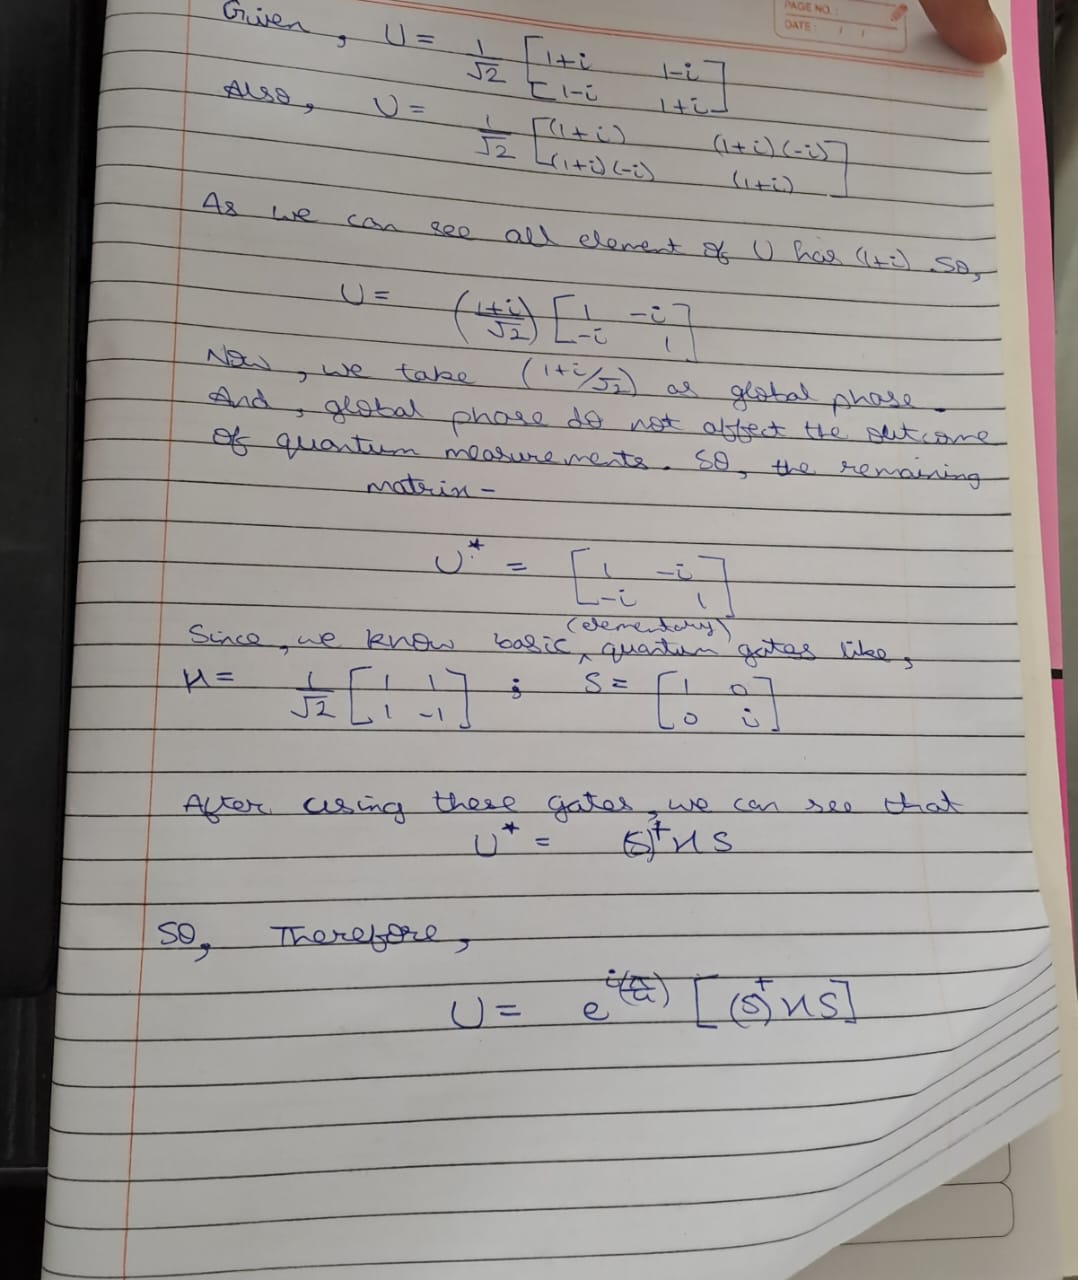 PAGE NO.:
DATE: / /
Given, U = 1/√2 [1+i 1-i]
[1-i 1+i]
Also, U = 1/√2 [(1+i) (1+i)(-i)]
[(1+i)(-i) (1+i)]
As we can see all element of U has (1+i). So,
U = ((1+i)/√2) [1 -i]
[-i 1]
Now, we take (1+i/√2) as global phase.
And, global phase do not affect the outcome
of quantum measurements. So, the remaining
matrix -
U* = [1 -i]
[-i 1]
(elementary)
Since, we know basic ^ quantum gates like,
H = 1/√2 [1 1] ; S = [1 0]
[1 -1] [0 i]
After using these gates, we can see that
U* = (S)†HS
So, Therefore,
U = e^i(π/4) [(S)†HS]